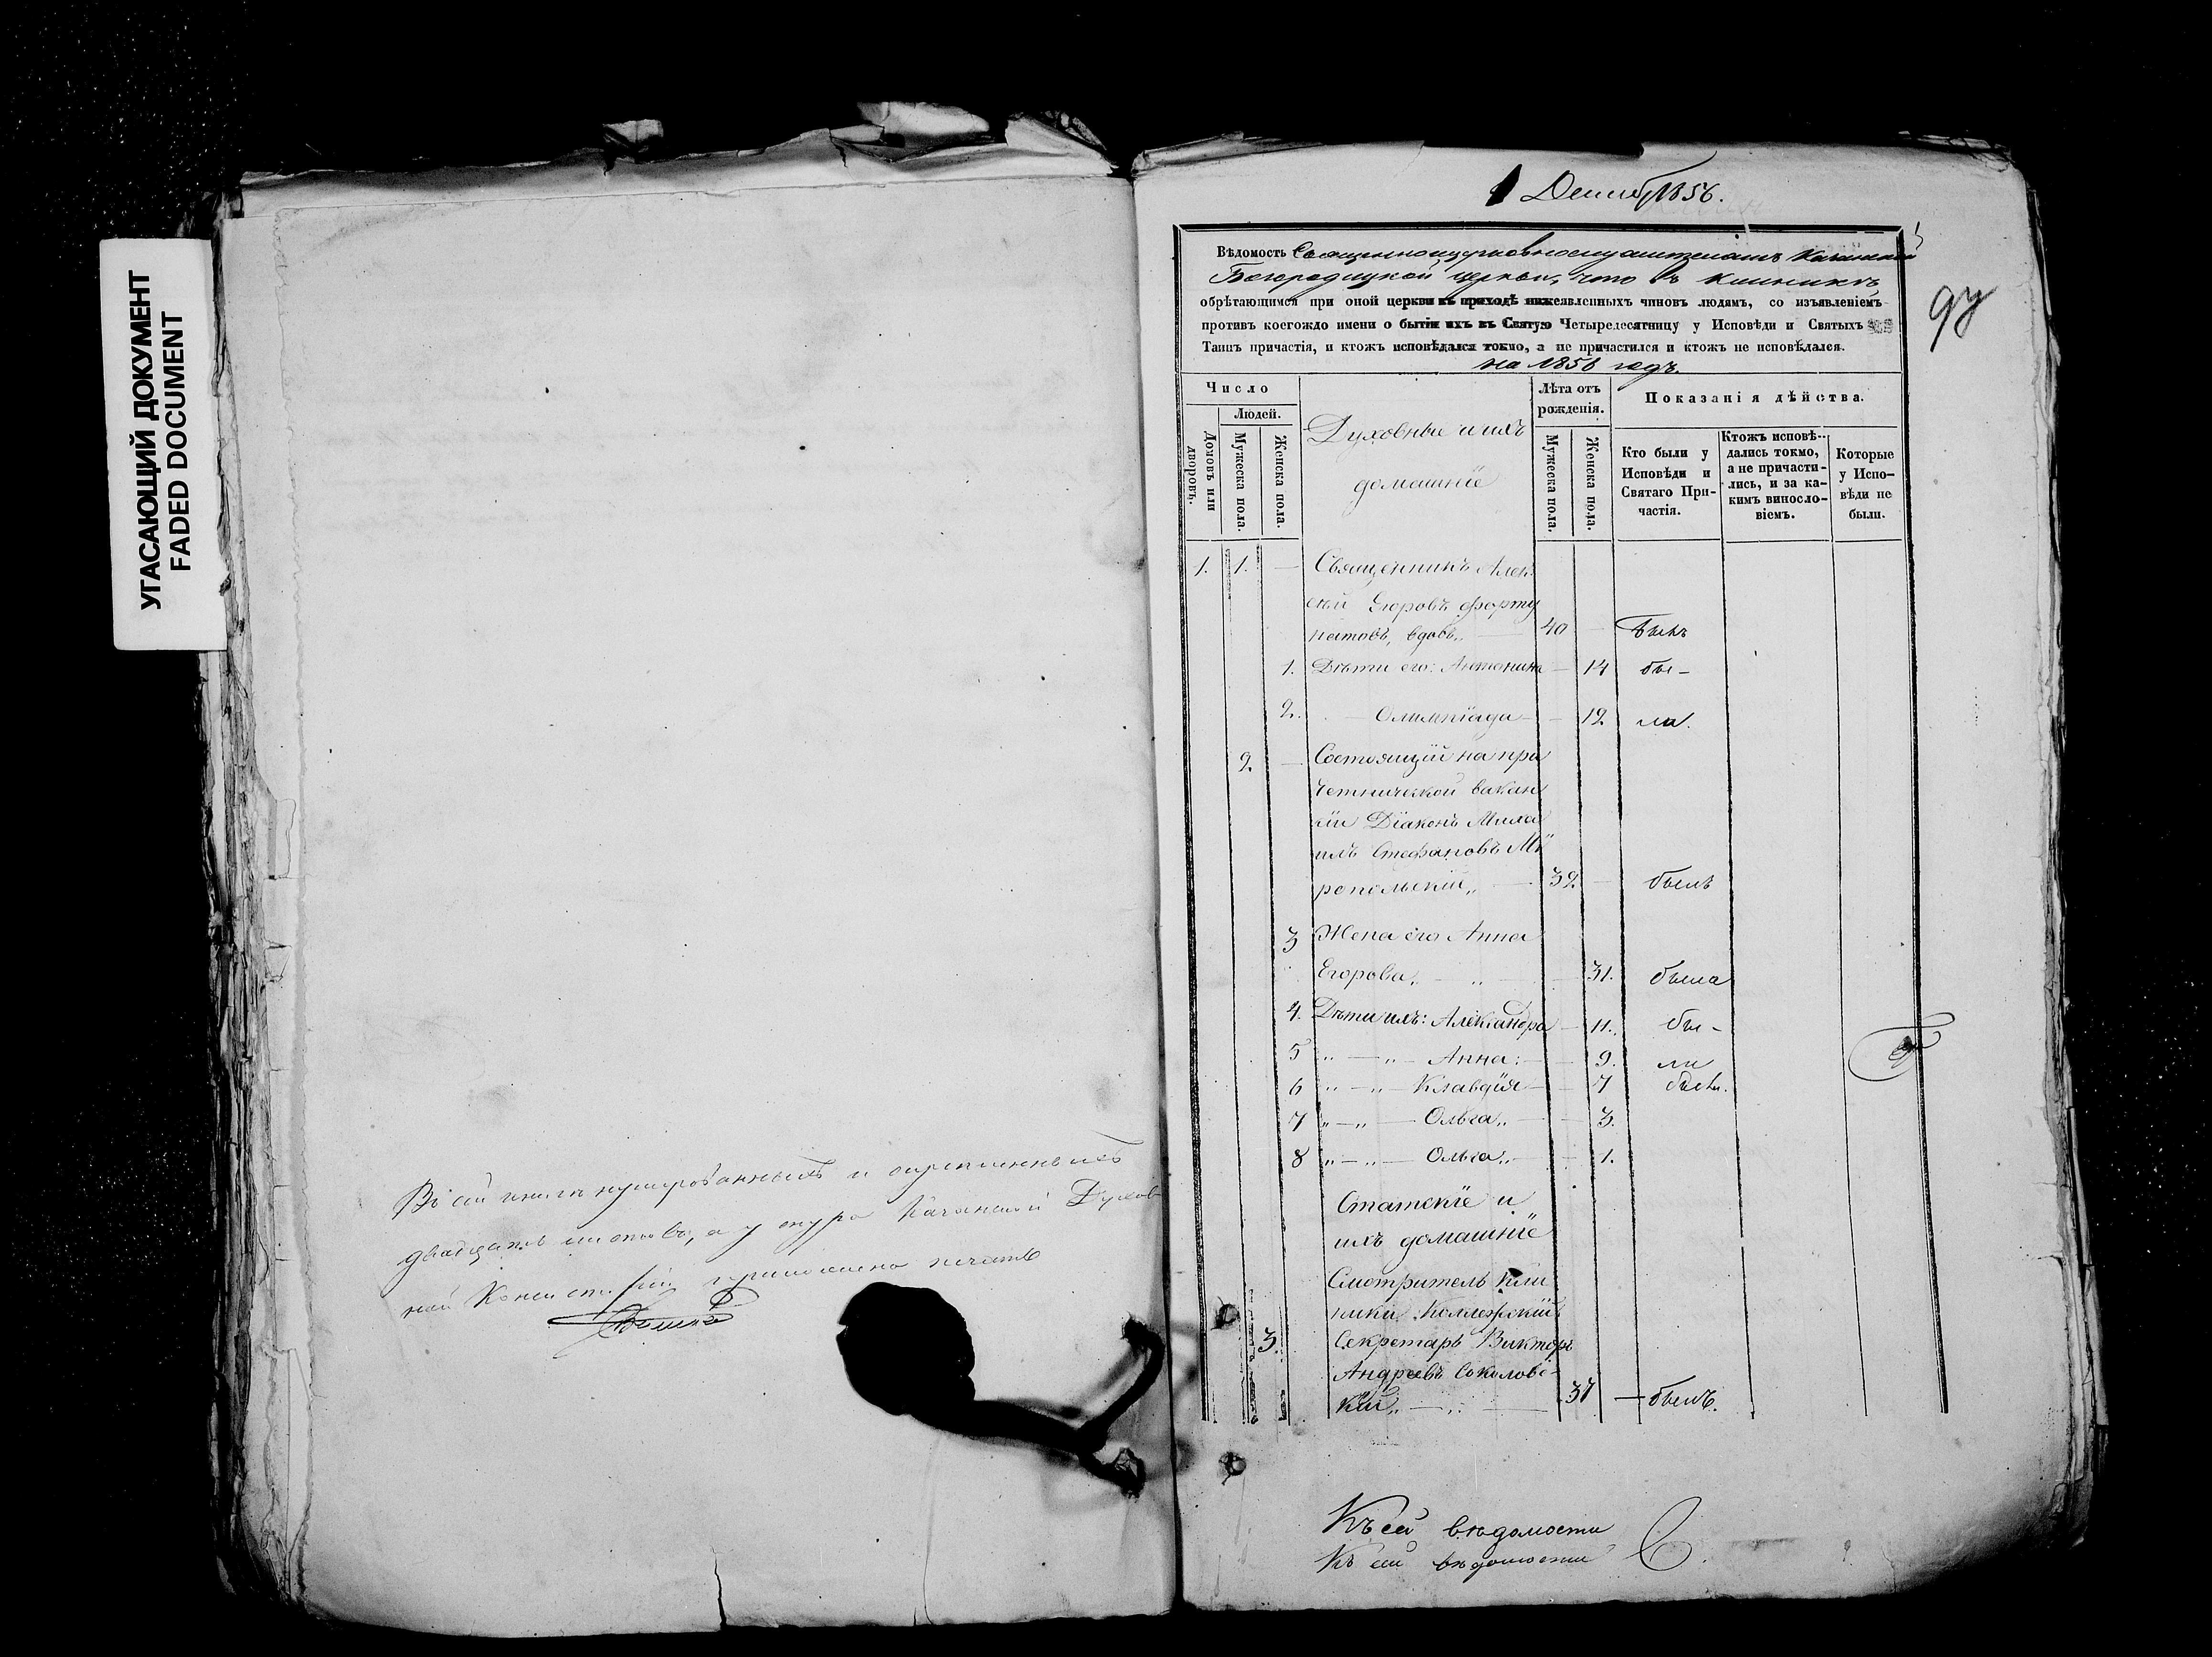 УГАСАЮЩИЙ ДОКУМЕНТ
FADED DOCUMENT
Въ сей книгѣ нумерованныхъ и скрепленныхъ
двадцать листовъ, а у шнура Казанской Духов
ной Консисторіи приложена печать
1856.
97
Вѣдомость Священноцерковнослужителямъ Казанской
Богородицкой церкви, что въ клиникѣ,
обрѣтающимся при оной церкви въ приходѣ нижеявленныхъ чиновъ людямъ, со изъявленіемъ
противъ коегождо имени о бытіи ихъ въ Святую Четыредесятницу у Исповѣди и Святыхъ
Таинъ причастія, и ктожъ исповѣдался токмо, а не причастился и ктожъ не исповѣдался.
на 1856 годъ.
Число
Людей.
Домовъ или дворовъ.
Мужеска пола.
Женска пола.
Духовные и ихъ
домашніе
Лѣта отъ
рожденія.
Мужеска пола.
Женска пола.
Показанія дѣйства.
Кто были у
Исповѣди и
Святаго При-
частія.
Ктожъ исповѣ-
дались токмо,
а не причасти-
лись, и за ка-
кимъ винословіемъ.
Которые
у Испо-
вѣди не
были.
1. 1. — Священникъ Алек
сѣй Егоровъ Форту
натовъ, вдовъ „ — 40 — былъ
1. Дѣти его: Антонина — 14 бы-
2. — Олимпіада — — 12 ли.
2. — Состоящій на при
четнической вакан
сіи Діаконъ Миха
илъ Стефановъ Мѵ
ропольскій „ — 32 — былъ
3 Жена его Анна
Егорова „ — „ — 31. была
4. Дѣти ихъ: Александра — 11. бы-
5 „ — „ — Анна: — 9. ли
6 „ — „ — Клавдія — 7 были.
7 „ — „ — Ольга „ — 3.
8 „ — „ — Ольга „ — 1.
Статскіе и
ихъ домашніе
Смотритель кли
ники Коллежскій
3. Секретарь Викторъ
Андреевъ Соколовс-
кій „ — „ — 37 — былъ.
Къ сей вѣдомости
Къ сей вѣдомости